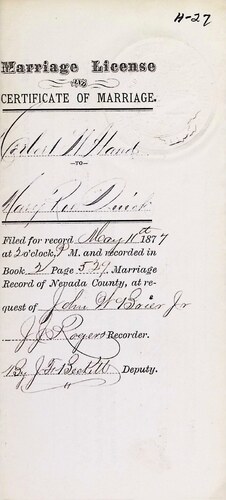 H-27
Marriage License
AND
CERTIFICATE OF MARRIAGE.
W. Hand
—TO—
Mary
Filed for record May 11th 1877
at 2 o'clock, P M. and recorded in
Book 2 Page 529 Marriage
Record of Nevada County, at re-
quest of John W Baier Jr
J. J. Rogers Recorder.
By J. F. Beckett Deputy.